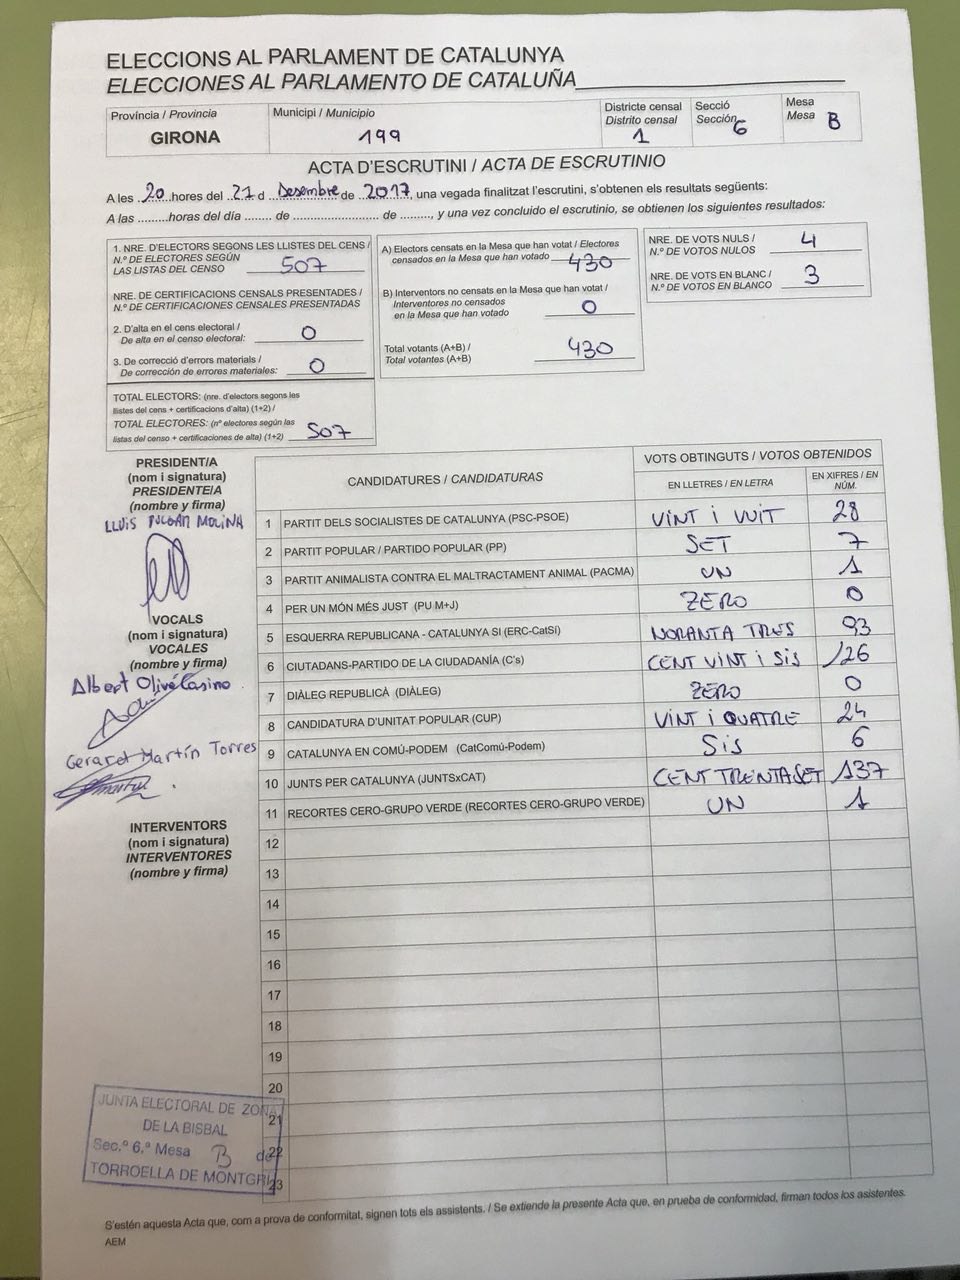 ELECCIONS AL PARLAMENT DE CATALUNYA
ELECCIONES AL PARLAMENTO DE CATALUÑA
Província / Provincia
GIRONA
Municipi / Municipio
199
Districte censal
Distrito censal
1
Secció
Sección
6
Mesa
Mesa
B
ACTA D'ESCRUTINI / ACTA DE ESCRUTINIO
A les 20 hores del 21 d Desembre de 2017, una vegada finalitzat l'escrutini, s'obtenen els resultats següents:
A las .........horas del día ....... de ...................... de ........, y una vez concluido el escrutinio, se obtienen los siguientes resultados:
1. NRE. D'ELECTORS SEGONS LES LLISTES DEL CENS /
N.º DE ELECTORES SEGÚN
LAS LISTAS DEL CENSO 507
NRE. DE CERTIFICACIONS CENSALS PRESENTADES /
N.º DE CERTIFICACIONES CENSALES PRESENTADAS
2. D'alta en el cens electoral /
De alta en el censo electoral: 0
3. De correcció d'errors materials /
De corrección de errores materiales: 0
TOTAL ELECTORS: (nre. d'electors segons les
llistes del cens + certificacions d'alta) (1+2) /
TOTAL ELECTORES: (nº electores según las
listas del censo + certificaciones de alta) (1+2) 507
A) Electors censats en la Mesa que han votat / Electores
censados en la Mesa que han votado 430
B) Interventors no censats en la Mesa que han votat /
Interventores no censados
en la Mesa que han votado 0
Total votants (A+B) /
Total votantes (A+B) 430
NRE. DE VOTS NULS /
N.º DE VOTOS NULOS 4
NRE. DE VOTS EN BLANC /
N.º DE VOTOS EN BLANCO 3
PRESIDENT/A
(nom i signatura)
PRESIDENTE/A
(nombre y firma)
LLUIS MOLINA
VOCALS
(nom i signatura)
VOCALES
(nombre y firma)
Albert Olivé Casino
Gerard Martín Torres
INTERVENTORS
(nom i signatura)
INTERVENTORES
(nombre y firma)
CANDIDATURES / CANDIDATURAS
VOTS OBTINGUTS / VOTOS OBTENIDOS
EN LLETRES / EN LETRA
EN XIFRES / EN NÚM.
1 PARTIT DELS SOCIALISTES DE CATALUNYA (PSC-PSOE) VINT I VUIT 28
2 PARTIT POPULAR / PARTIDO POPULAR (PP) SET 7
3 PARTIT ANIMALISTA CONTRA EL MALTRACTAMENT ANIMAL (PACMA) UN 1
4 PER UN MÓN MÉS JUST (PU M+J) ZERO 0
5 ESQUERRA REPUBLICANA - CATALUNYA SI (ERC-CatSí) NORANTA TRES 93
6 CIUTADANS-PARTIDO DE LA CIUDADANÍA (C's) CENT VINT I SIS 126
7 DIÀLEG REPUBLICÀ (DIÀLEG) ZERO 0
8 CANDIDATURA D'UNITAT POPULAR (CUP) VINT I QUATRE 24
9 CATALUNYA EN COMÚ-PODEM (CatComú-Podem) SIS 6
10 JUNTS PER CATALUNYA (JUNTSxCAT) CENT TRENTA SET 137
11 RECORTES CERO-GRUPO VERDE (RECORTES CERO-GRUPO VERDE) UN 1
12
13
14
15
16
17
18
19
20
21
22
23
JUNTA ELECTORAL DE ZONA
DE LA BISBAL
Sec.ª 6.ª Mesa B de
TORROELLA DE MONTGRÍ
S'estén aquesta Acta que, com a prova de conformitat, signen tots els assistents. / Se extiende la presente Acta que, en prueba de conformidad, firman todos los asistentes.
AEM